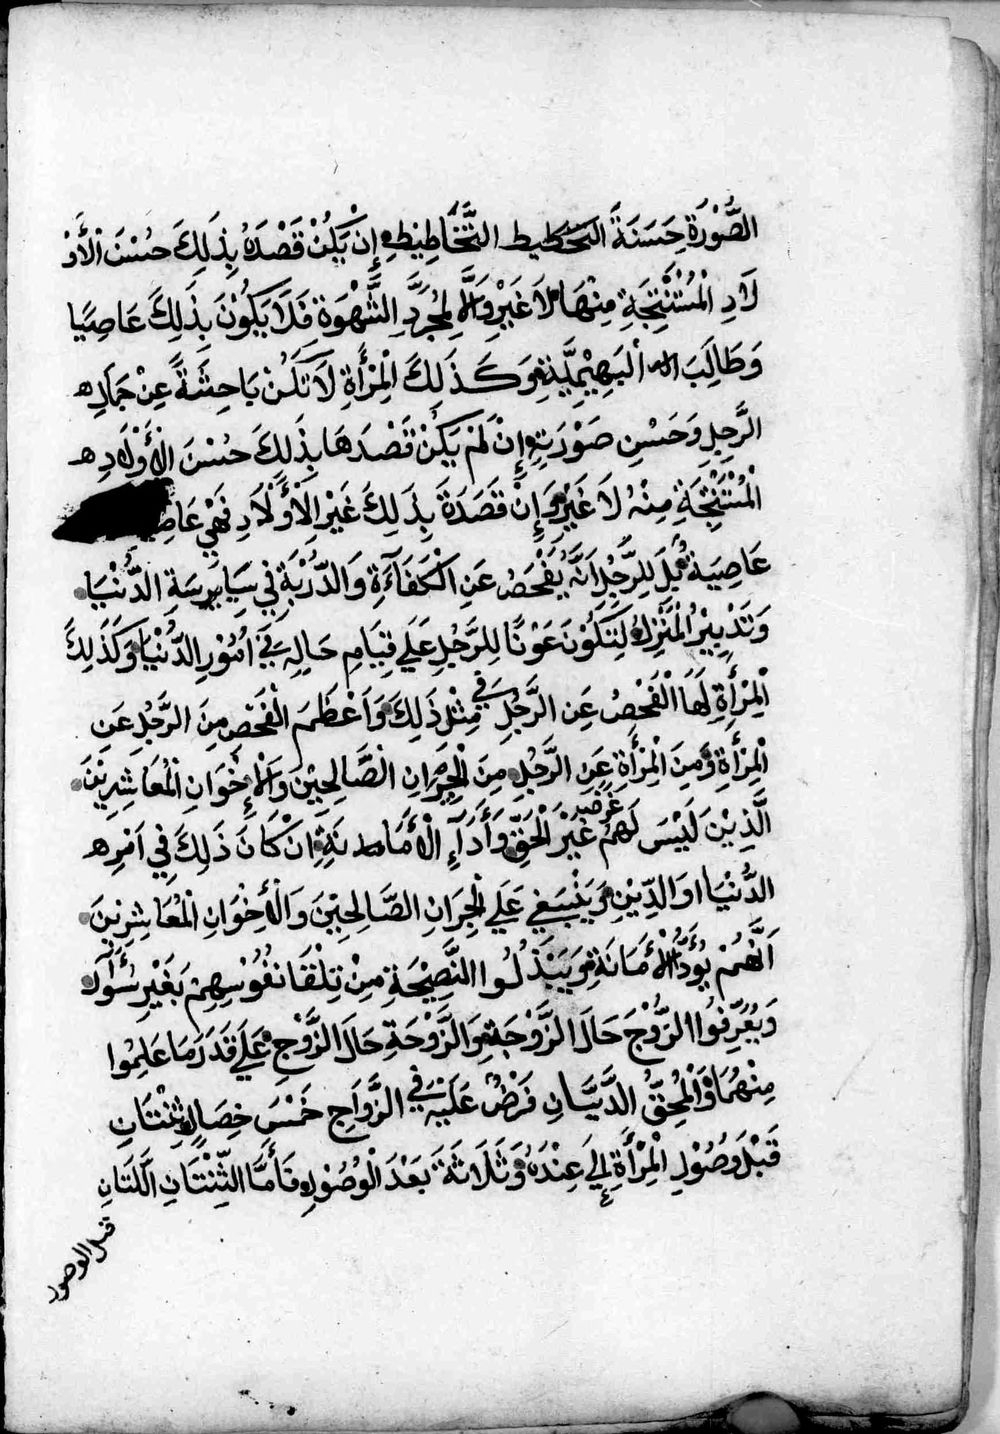 الصُّوْرَةِ حَسَنَةَ التخطيط التَّخَاطِيْطِ إِنْ يَكُنْ قَصْدَهُ بِذَلِكَ حُسْنَ الْأَوْ
لَادِ الْمُسْتَنْتِجَةِ مِنْهَا لَا غَيْرِ وَالَّا لِمُجَرَّدِ الشَّهْوَةِ فَلَا يَكُوْنَ بِذَلِكَ عَاصِيًا
وَطَالِبَ الْبَهِيْمِيَّةِ وَكَذَلِكَ الْمِرْأَةِ لَا تَكُنْ بَاحِثَةً عِنْ جَمَالِ
الرَّجِلِ وَحَسْنِ صَوْرَتِهِ إِنْ لَمْ يَكُنْ قَصْدَهَا بِذَلِكَ حُسْنَ الْأَوْلَادِ
الْمُسْتَنْتِجَةِ مِنْهُ لَا غَيْرِ وَإِنْ قَصَدَةَ بِذَلِكَ غَيْرِ الْأَوْلَادِ فَهْيَ عَاصِ
عَاصِيَة بَلَ لِلرَّجُلِ اَنَّهُ يَفْحَصُ عَنِ الْكَفَآءَةِ وَالدَّرْبَةِ فِي سِيَاسَةِ الدُّنْيَا
وَتَدْبِيْرُ الْمَنْزِلِ لِتَكُوْنَ عَوْنًا لِلرَّجُلِ عَلَي قِيَامِ حَالِهِ فِي اُمُوْرِ الدُّنْيَا وَكَذَلِكَ
الْمِرْأَةِ لَهَا الْفَحْصُ عَنِ الرَّجُلِ فِي مِثْلِ ذَلِكَ وَاَعْظَمَ الْفَحْصِ مِنَ الرَّجُلِ عَنِ
الْمِرْأَةِ وَمِنَ الْمِرْأَةِ عَنِ الرَّجُلِ مِنَ الْجِيْرَانِ الصَّالِحِيْنَ وَالْإِخْوَانِ الْمُعَاشِرِيْنَ
الَّذِيْنَ لَيْسَ لَهُمْ غرض غَيْرَ الْحَقِّ وَأَدَآءِ الْأَمَانَةِ اِنْ كَانَ ذَلِكَ فِي اَمْرِ
الدُّنْيَا اوَالدِّيْنِ وَيَنْبَغِي عَلَي الْجِرَانِ الصَّالِحِيْنَ وَالْأَخْوَانِ الْمُعَاشِرِيْنَ
اَنَّهُمْ يُؤَدُّوا الْأَمَانَةِ وَيَبْذُلُوا النَّصِيْحَةِ مِنْ تِلْقَا نفُوْسِهِمْ بَغَيْرِ سُؤَآل
وَيُعَرِّفُوا الزَّوْجَ حَالَ الزَّوْجَةِ وَالزَّوْجَةِ حَالَ الزَّوْجِ عَلَي قَدَرَمَا عَلِمُوا
مِنْهُمَا وَالْمُحِقُّ الدَّيَّانِ فَرْضٌ عَلَيْهِ فِي الزَّوَاجِ خَمْسَ خِصَالِ ثِنْتَانِ
قَبْلَ وَصُوْلِ الْمِرْأَةِ إِلَي عِنْدَهُ وَثَلَاثَةَ بَعْدَ الْوُصُوْلِ فَأَمَّا الثِّنْتَانِ الَّلتَانِ
قبل الوصول